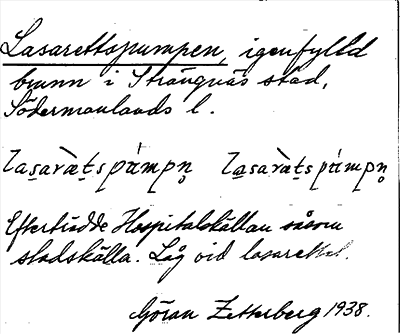 Lasarettspumpen, igenfylld
brunn i Strängnäs stad,
Södermanlands l.
lasaràe̠t̠spám̀pn̥ lasaràe̠t̠spám̀pn̥
Efterträdde Hospitalskällan såsom
stadskälla. Låg vid lasarettet.
Göran Zetterberg 1938.